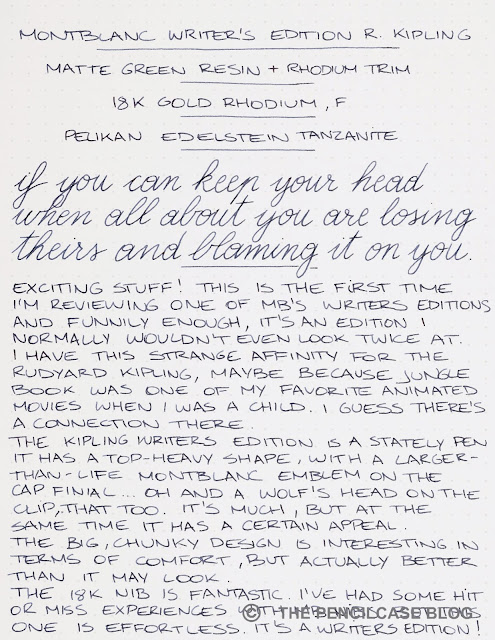 MONTBLANC WRITER'S EDITION R. KIPLING
MATTE GREEN RESIN + RHODIUM TRIM
18K GOLD RHODIUM, F
PELIKAN EDELSTEIN TANZANITE
if you can keep your head
when all about you are losing
theirs and blaming it on you.
EXCITING STUFF! THIS IS THE FIRST TIME
I'M REVIEWING ONE OF MB'S WRITERS EDITIONS
AND FUNNILY ENOUGH, IT'S AN EDITION I
NORMALLY WOULDN'T EVEN LOOK TWICE AT.
I HAVE THIS STRANGE AFFINITY FOR THE
RUDYARD KIPLING, MAYBE BECAUSE JUNGLE
BOOK WAS ONE OF MY FAVORITE ANIMATED
MOVIES WHEN I WAS A CHILD. I GUESS THERE'S
A CONNECTION THERE.
THE KIPLING WRITERS EDITION IS A STATELY PEN
IT HAS A TOP-HEAVY SHAPE, WITH A LARGER-
THAN-LIFE MONTBLANC EMBLEM ON THE
CAP FINIAL... OH AND A WOLF'S HEAD ON THE
CLIP, THAT TOO. IT'S MUCH, BUT AT THE
SAME TIME IT HAS A CERTAIN APPEAL.
THE BIG, CHUNKY DESIGN IS INTERESTING IN
TERMS OF COMFORT, BUT ACTUALLY BETTER
THAN IT MAY LOOK.
THE 18K NIB IS FANTASTIC. I'VE HAD SOME HIT
OR MISS EXPERIENCES WITH
© THE PENCILCASE BLOG
ONE IS EFFORTLESS. IT'S A WRITERS EDITION!